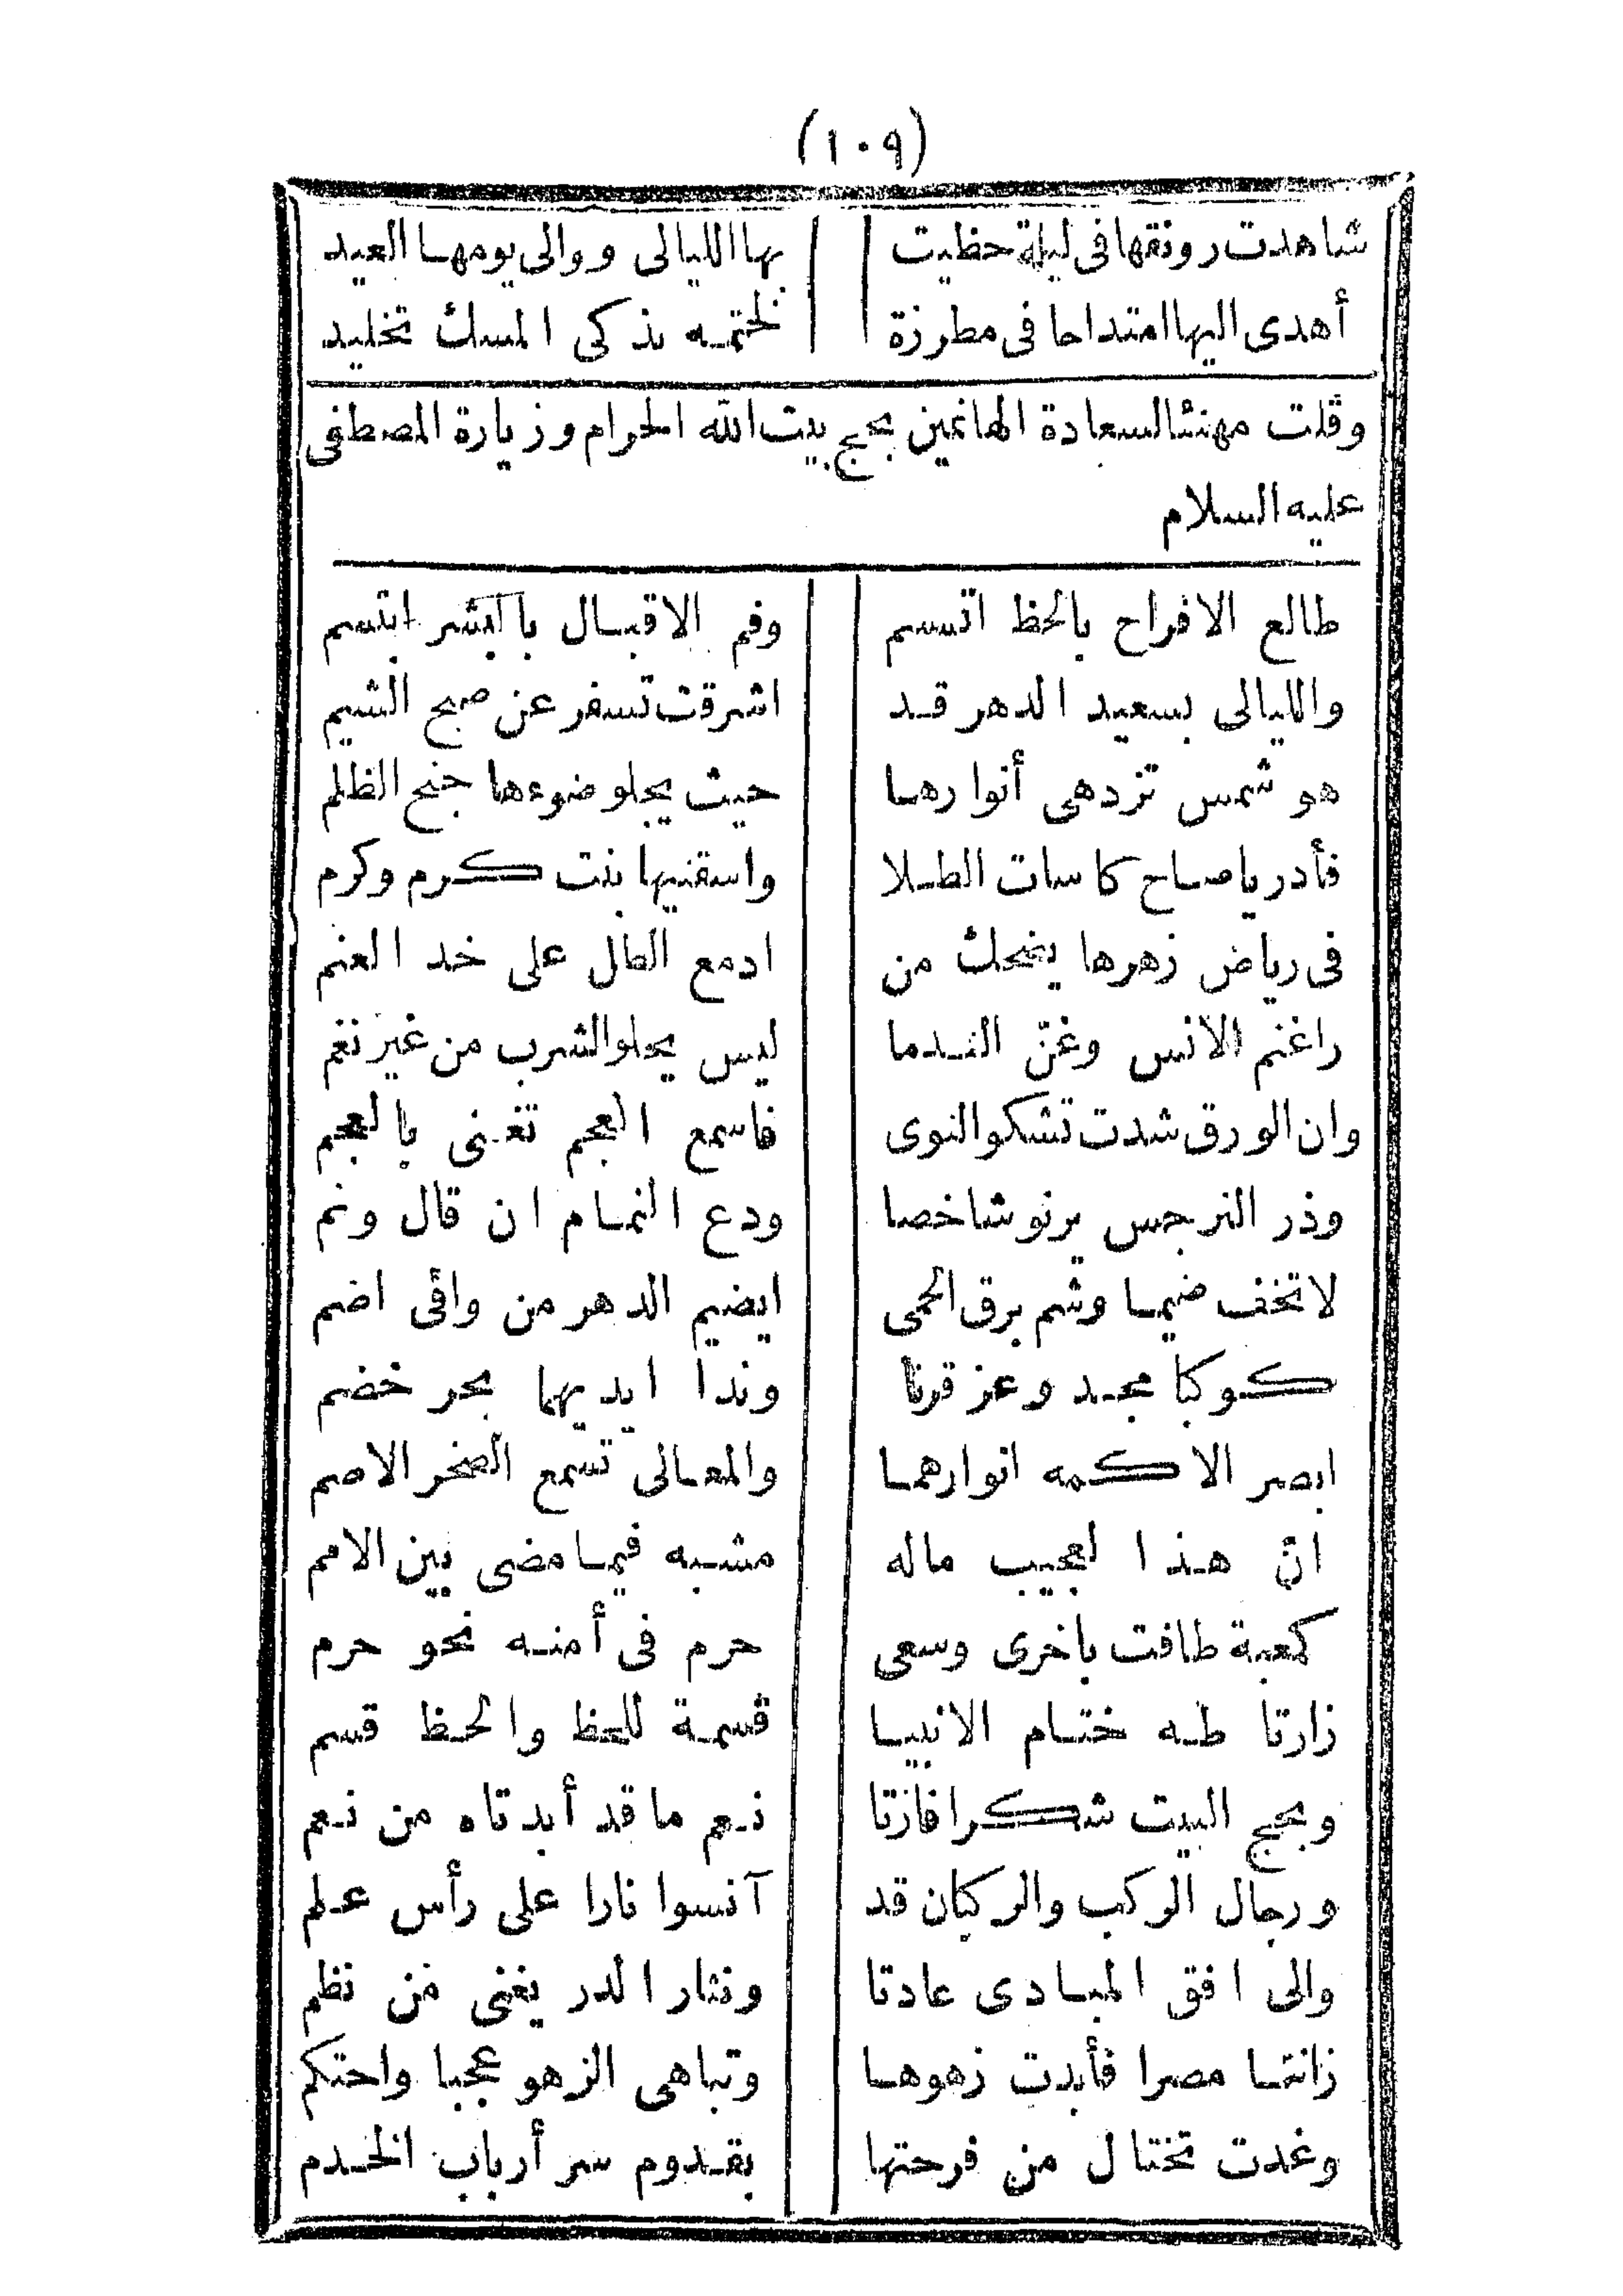 (١٠٩)
شاهدت رونقها فى ليلة حظيت بها الليالى ووالى يومها العيد
أهدى اليها امتداحا فى مطرزة لختمه بذكى المسك تخليد
وقلت مهنئا لسعادة الهانمين بحج بيت الله الحرام وزيارة المصطفى
عليه السلام
طالع الافراح بالحظ اتسم وفم الاقبال بالبشر ابتسم
والليالى بسعيد الدهر قد اشرقت تسفر عن صبح الشيم
هو شمس تزدهى أنوارها حيث يجلو ضوءها جنح الظلم
فأدر ياصاح كاسات الطلا واسقنيها بنت كرم وكرم
فى رياض زهرها يضحك من ادمع الطل على خد العنم
راغنم الانس وغنّ الندما ليس يحلو الشرب من غير نغم
وان الورق شدت تشكو النوى فاسمع العجم تغنى بالعجم
وذر النرجس يرنو شاخصا ودع النمام ان قال ونم
لا تخف ضيما وشم برق الحمى ايضيم الدهر من وافى اضم
كوكبا مجد وعز قرنا وندا ايديهما بحر خضم
ابصر الاكمه انوارهما والمعالى تسمع الصخر الاصم
انّ هذا لعجيب ماله مشبه فيما مضى بين الامم
كعبة طافت باخرى وسعى حرم فى أمنه نحو حرم
زارتا طه ختام الانبيا قسمة للحظ والحظ قسم
وبحج البيت شكرا فازتا نعم ما قد أبدتاه من نعم
ورجال الركب والركبان قد آنسوا نارا على رأس علم
والى افق المبادى عادتا ونثار الدر يغنى من نظم
زانتا مصرا فأبدت زهوها وتباهى الزهو عجبا واحتكم
وغدت تختال من فرحتها بقدوم سر أرباب الخدم